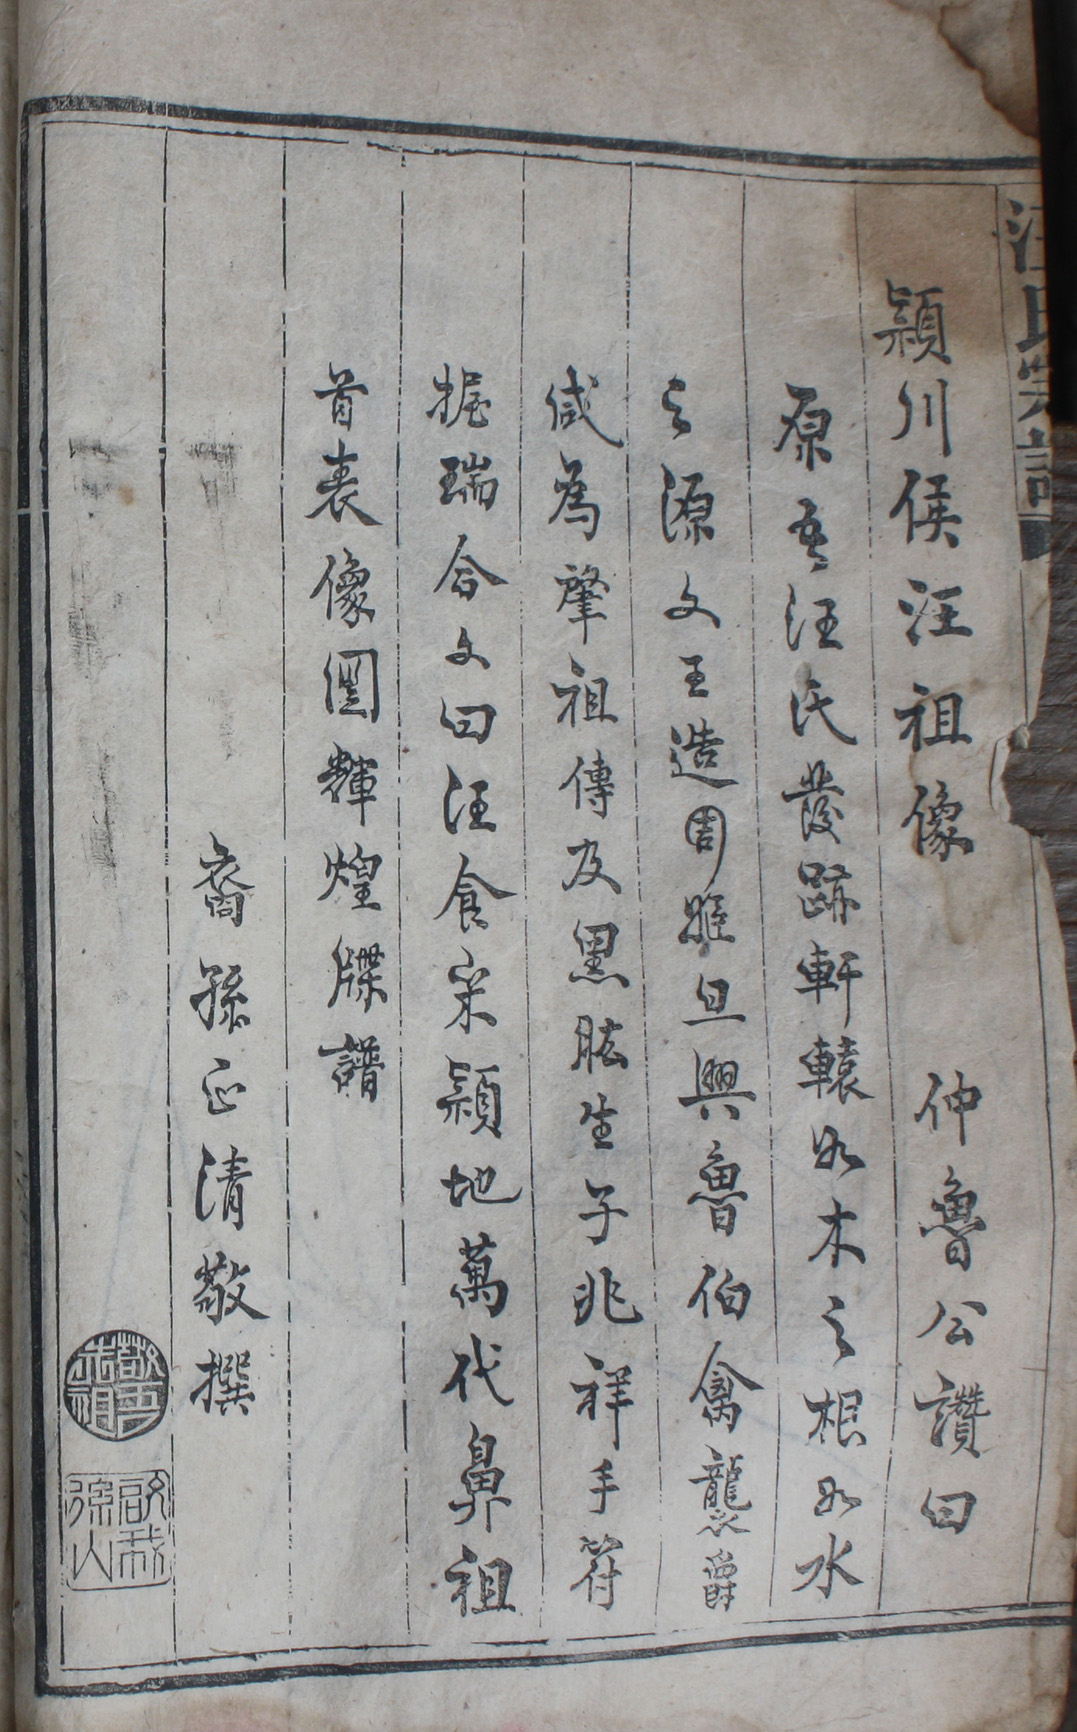 汪氏宗譜
穎川侯汪祖像 仲魯公讚曰
原吾汪氏發跡軒轅如木之根如水
之源文王造周雎旦興魯伯禽襲爵
咸為肇祖傳及黑肱生子兆祥手符
握瑞合文曰汪食采穎地萬代鼻祖
首表像圖輝煌牒譜
裔孫正清敬撰